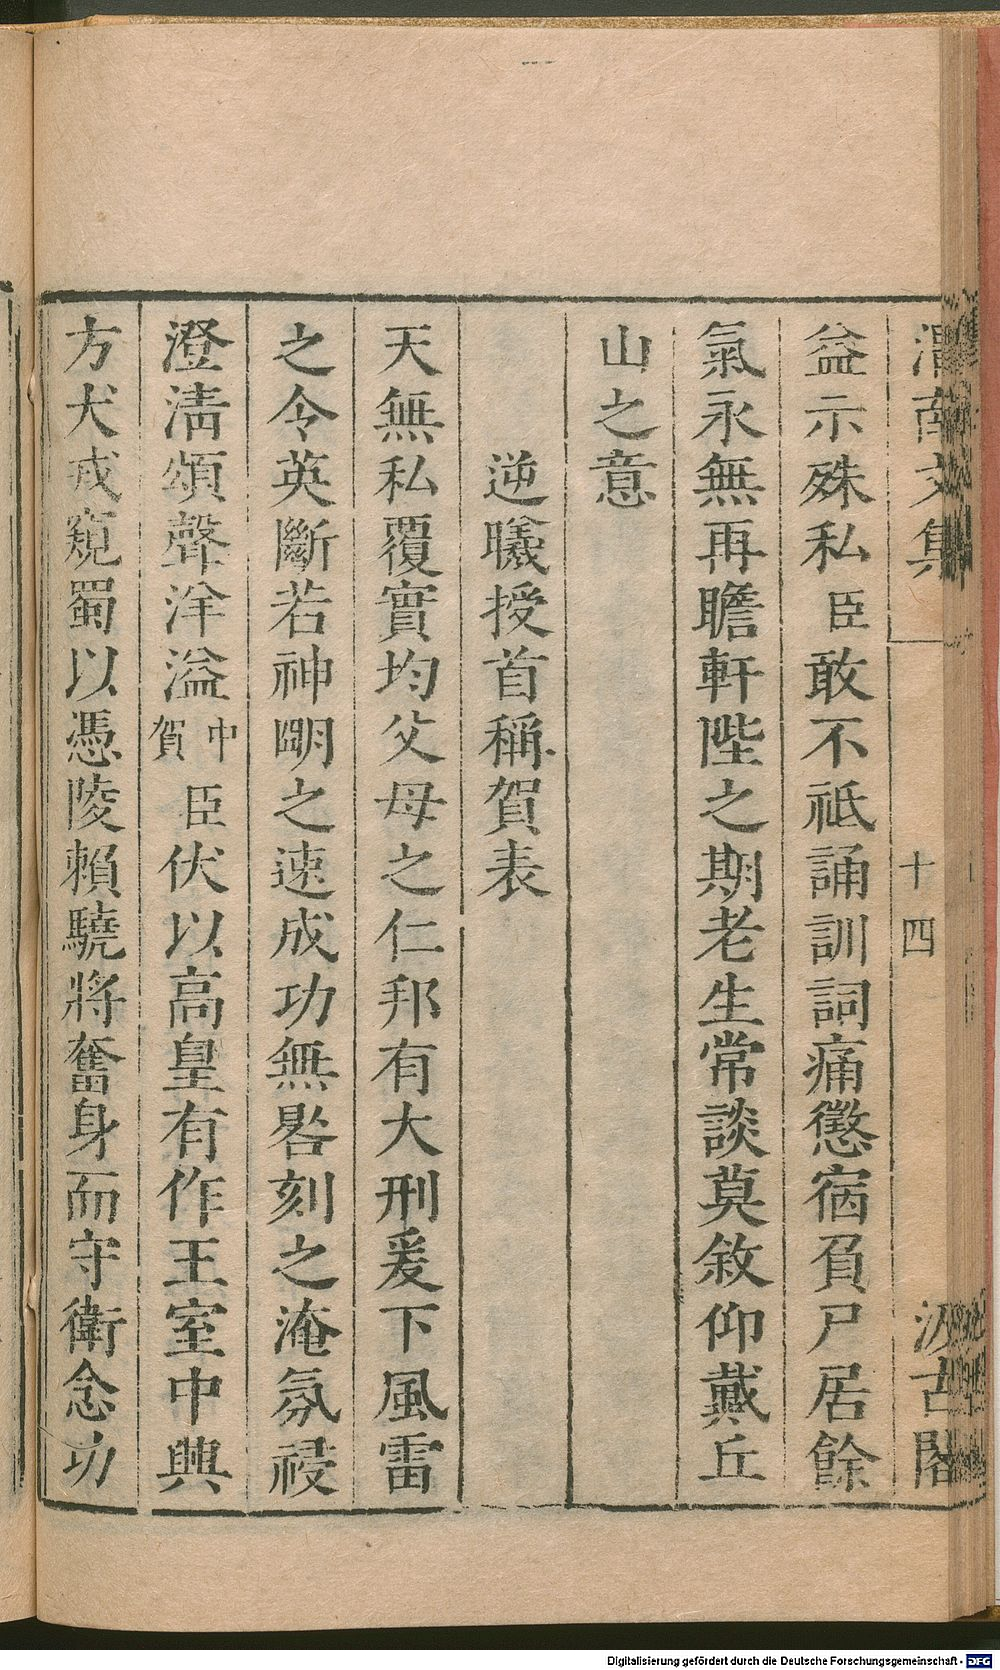 渭南文集
十四
汲古閣
益示殊私臣敢不祗誦訓詞痛懲宿負尸居餘
氣永無再瞻軒陛之期老生常談莫敘仰戴丘
山之意
逆曦授首稱賀表
天無私覆實均父母之仁邦有大刑爰下風雷
之令英斷若神明之速成功無晷刻之淹氛祲
澄清頌聲洋溢中賀臣伏以高皇有作王室中興
方犬戎窺蜀以憑陵賴驍將奮身而守衛念功
Digitalisierung gefördert durch die Deutsche Forschungsgemeinschaft - DFG